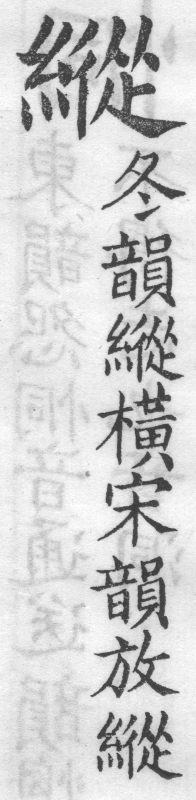 縱
冬韻縱橫宋韻放縱